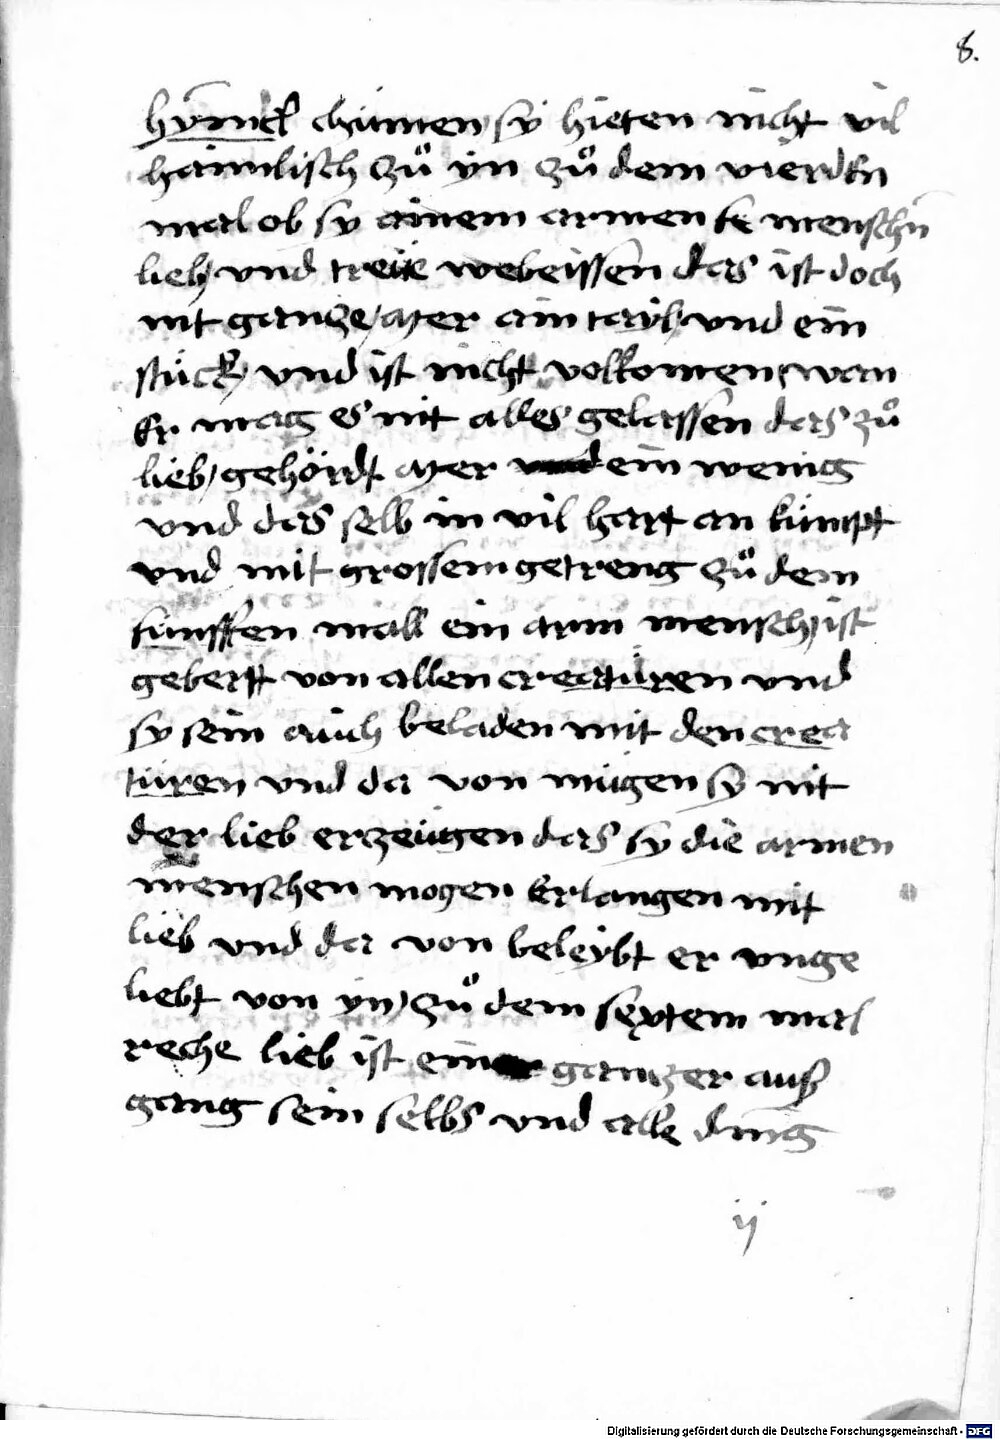 8.
hymel chümen sy hieten nicht vil
haimlisch zů yn zů dem vierdtn
mal ob sy ainem armen menschn
lieb und treüe webeissen das ist doch
nit gancze / ayer ain tayl und ein
stück / und ist nicht volkomen wan
Er mag es nit alles gelassen das zů
lieb / gehördt ayer ein wenig
und das selb in vil hart an kümpt
und mit grossem getreng zů dem
fünfften mall ein arm mensch / ist
von allen creatüren und
sy sein auch beladen mit den crea
türen und da von mügen sy nit
der lieb erzeügen das sy die armen
menschen mogen Erlangen mit
lieb und da von beleybt er unge
liebt von yn / zů dem sextem mal
reche lieb ist ein ganczer auß
gang sein selbs und alle ding
ij
Digitalisierung gefördert durch die Deutsche Forschungsgemeinschaft - DFG